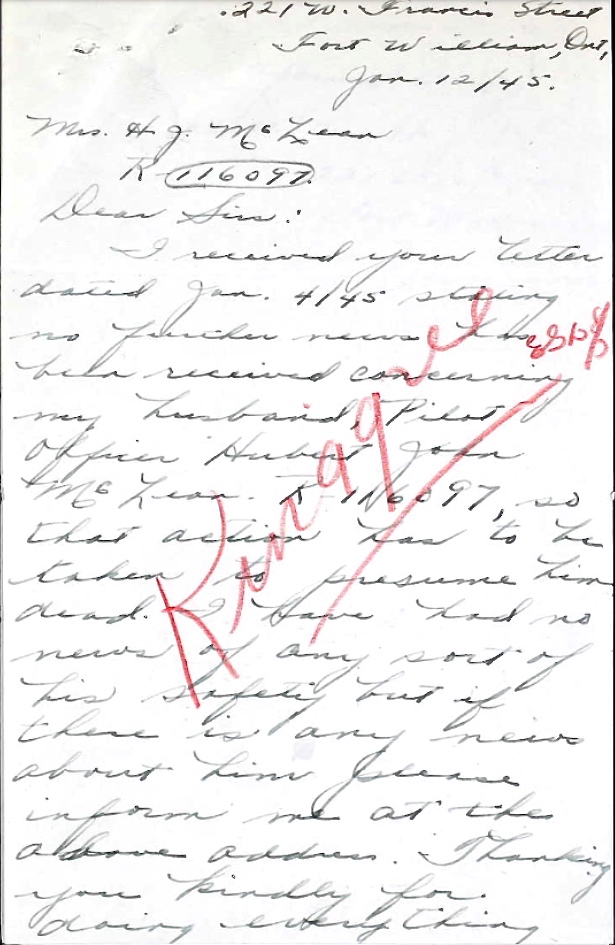 221 W. Francis Street
Fort William, Ont,
Jan. 12/45.
Mrs. H J. McLean
R 116097
Dear Sir:
I received your letter
dated Jan. 4/45 stating
no further news has
been received concerning
my husband, Pilot
Officer Hubert John
McLean. R 116097, so
that action has to be
taken to presume him
dead. I have had no
news of any sort of
his safety but if
there is any news
about him please
inform me at the
above address. Thanking
you kindly for
doing everything